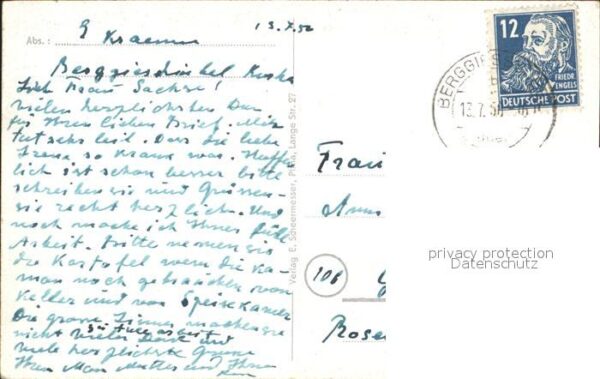 13.7.52
Abs.: E Kraemer
Berggieshübel
Lieb Frau Sachse!
vielen herzlichsten Dan
für Ihren lieben Brief. Mir
tut sehr leid. Das die liebe
Irene so krank war. Hoffen
lich ist schon besser bitte
schreiben sie und Grüssen
sie recht herzlich. Und
noch mache ich Ihnen
Arbeit. Bitte nemen sie
die Kartofel wenn die ka
man noch gebrauchen vom
Keller und von Speisekamer
Die grosse machen sie
nicht vielen Dank und
viele herzlichste Grüsse
Ihren Man Mutter und Ihnen
Verlag E. Schleermesser, Pirna, Lange Str. 27
12
FRIEDR.
ENGELS
DEUTSCHE POST
BERGGIES
13.7.5
Frau
Ann
10b
Rose
privacy protection
Datenschutz